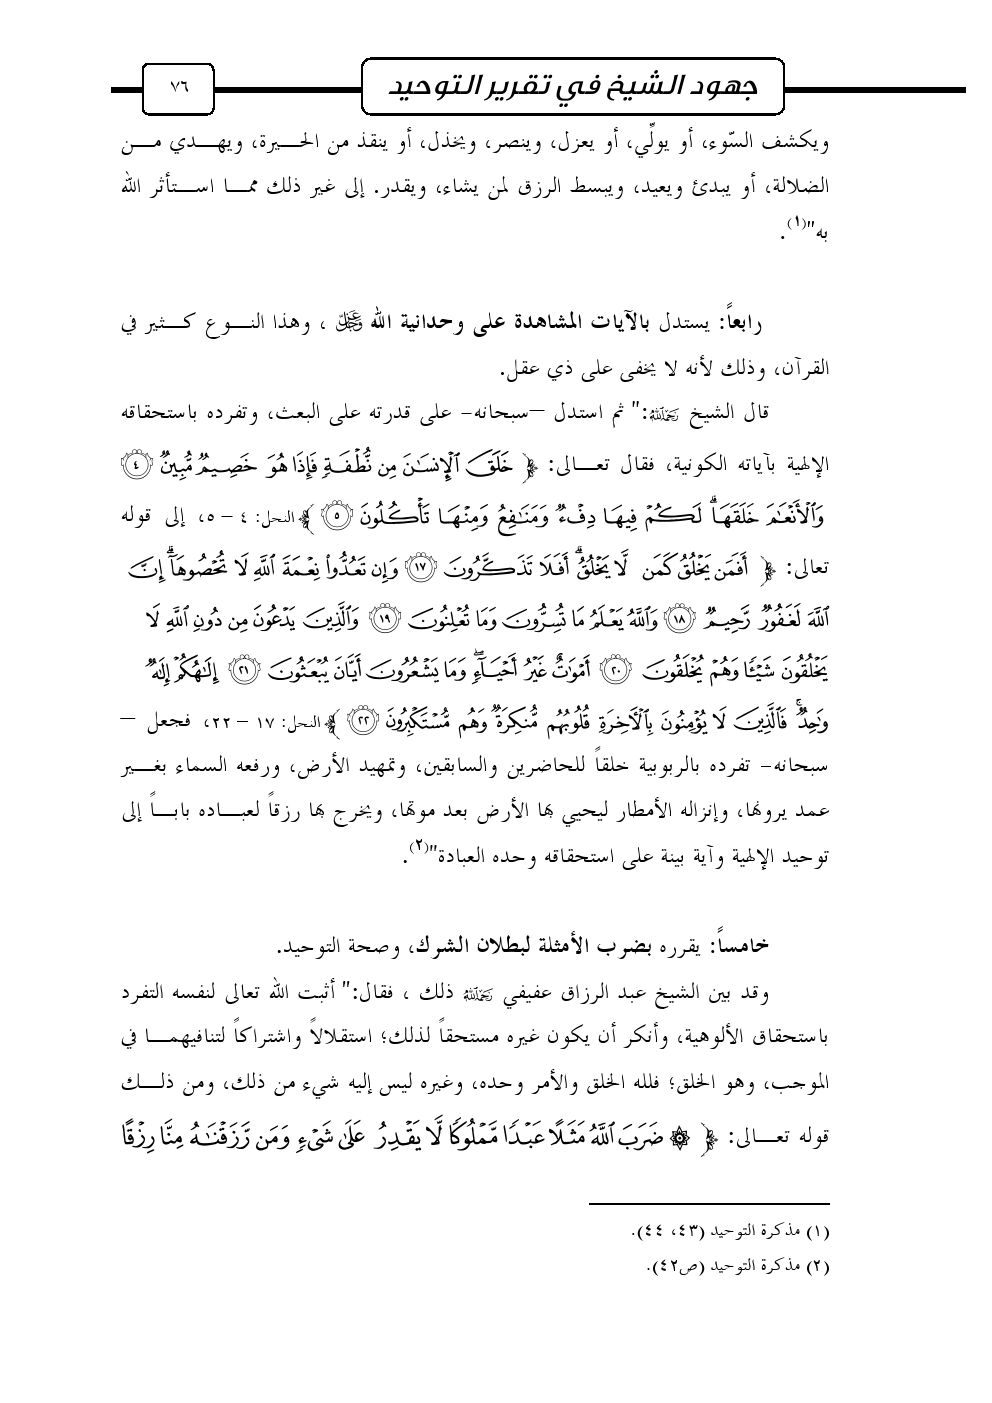 جهود الشيخ في تقرير التوحيد
٧٦
ويكشف السّوء، أو يولِّي، أو يعزل، وينصر، ويخذل، أو ينقذ من الحـــيرة، ويهـــدي مـــن
الضلالة، أو يبدئ ويعيد، ويبسط الرزق لمن يشاء، ويقدر. إلى غير ذلك ممـــا اســـتأثر الله
به"(١).
رابعاً: يستدل بالآيات المشاهدة على وحدانية الله ﷻ ، وهذا النـــوع كـــثير في
القرآن، وذلك لأنه لا يخفى على ذي عقل.
قال الشيخ رحمه الله:" ثم استدل –سبحانه- على قدرته على البعث، وتفرده باستحقاقه
الإلهية بآياته الكونية، فقال تعـــالى: ﴿ خَلَقَ ٱلْإِنسَٰنَ مِن نُّطْفَةٍ فَإِذَا هُوَ خَصِيمٌ مُّبِينٌ ٤
وَٱلْأَنْعَٰمَ خَلَقَهَا ۗ لَكُمْ فِيهَا دِفْءٌ وَمَنَٰفِعُ وَمِنْهَا تَأْكُلُونَ ٥ ﴾ النحل: ٤ – ٥، إلى قوله
تعالى: ﴿ أَفَمَن يَخْلُقُ كَمَن لَّا يَخْلُقُ ۗ أَفَلَا تَذَكَّرُونَ ١٧ وَإِن تَعُدُّوا۟ نِعْمَةَ ٱللَّهِ لَا تُحْصُوهَآ ۗ إِنَّ
ٱللَّهَ لَغَفُورٌ رَّحِيمٌ ١٨ وَٱللَّهُ يَعْلَمُ مَا تُسِرُّونَ وَمَا تُعْلِنُونَ ١٩ وَٱلَّذِينَ يَدْعُونَ مِن دُونِ ٱللَّهِ لَا
يَخْلُقُونَ شَيْـًٔا وَهُمْ يُخْلَقُونَ ٢٠ أَمْوَٰتٌ غَيْرُ أَحْيَآءٍ ۖ وَمَا يَشْعُرُونَ أَيَّانَ يُبْعَثُونَ ٢١ إِلَٰهُكُمْ إِلَٰهٌ
وَٰحِدٌ ۚ فَٱلَّذِينَ لَا يُؤْمِنُونَ بِٱلْءَاخِرَةِ قُلُوبُهُم مُّنكِرَةٌ وَهُم مُّسْتَكْبِرُونَ ٢٢ ﴾ النحل: ١٧ – ٢٢، فجعل –
سبحانه- تفرده بالربوبية خلقاً للحاضرين والسابقين، وتمهيد الأرض، ورفعه السماء بغـــير
عمد يرونها، وإنزاله الأمطار ليحيي بها الأرض بعد موتها، ويخرج بها رزقاً لعبـــاده بابـــاً إلى
توحيد الإلهية وآية بينة على استحقاقه وحده العبادة"(٢).
خامساً: يقرره بضرب الأمثلة لبطلان الشرك، وصحة التوحيد.
وقد بين الشيخ عبد الرزاق عفيفي رحمه الله ذلك ، فقال:" أثبت الله تعالى لنفسه التفرد
باستحقاق الألوهية، وأنكر أن يكون غيره مستحقاً لذلك؛ استقلالاً واشتراكاً لتنافيهمـــا في
الموجب، وهو الخلق؛ فلله الخلق والأمر وحده، وغيره ليس إليه شيء من ذلك، ومن ذلـــك
قوله تعـــالى: ﴿ ۞ ضَرَبَ ٱللَّهُ مَثَلًا عَبْدًا مَّمْلُوكًا لَّا يَقْدِرُ عَلَىٰ شَىْءٍ وَمَن رَّزَقْنَٰهُ مِنَّا رِزْقًا
(١) مذكرة التوحيد (٤٣، ٤٤).
(٢) مذكرة التوحيد (ص٤٢).